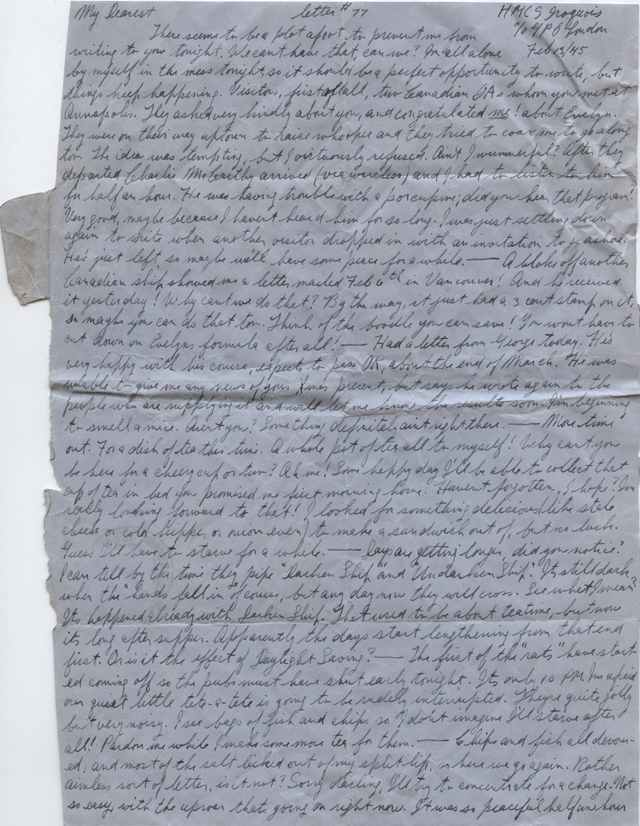 My Dearest letter #77 HMCS Iroquois
There seems to be a plot afoot to prevent me from c/o GPO London
writing to you tonight. We cant have that, can we? Im all alone Feb 13/45
by myself in the mess tonight, so it should be a perfect opportunity to write, but
things keep happening. Visitors, first of all, two Canadian whom you met at
Annapolis. They asked very kindly about you, and congratulated me! about Evelyn.
They were on their way uptown to raise whoopee and they tried to coax me to go along
too. The idea was tempting, but I virtuously refused. Ain't I wunnerful? After they
departed Charlie McCarthy arrived (via wireless) and I had to listen to him
for half an hour. He was having trouble with a porcupine; did you hear that program?
Very good, maybe because I haven't heard him for so long. I was just settling down
again to write when another visitor dropped in with an invitation to go ashore.
Hes just left so maybe we'll have some peace for a while. — A bloke off another
Canadian ship showed me a letter mailed Feb 6th in Vancouver! And he received
it yesterday! Why cant we do that? By the way, it just had a 3 cent stamp on it
so maybe you can do that too. Think of the boodle you can save! You wont have to
cut down on Evelyns formula after all! — Had a letter from George today. He's
very happy with his course, expects to pass OK, about the end of March. He was
unable to give me any news of your Xmas present, but says he wrote again to the
people who are supplying it and will let me know the results soon. Im beginning
to smell a mice. Aren't you? Something definitely aint right there. — More time
out. For a dish of tea this time. A whole pot of tea all to myself! Why cant you
be here for a cheery cup or two? Ah me! Some happy day I'll be able to collect that
cup of tea in bed you promised me first morning home. Havent forgotten, I hope? Im
really looking forward to that! I looked for something delicious (like stale
cheese or cold kipper, or onion even) to make a sandwich out of, but no luck.
Guess I'll have to starve for a while. — Days are getting longer, did you notice?
I can tell by the time they pipe "Darken Ship" and "Undarken Ship". Its still dark
when the "hands fall in" of course, but any day now they will cross. See what I mean?
Its happened already with Darken Ship. That used to be about teatime, but now
its long after supper. Apparently the days start lengthening from that end
first. Or is it the effect of Daylight Saving? — The first of the "rats" have start
ed coming off so the pubs must have shut early tonight. Its only 10 PM. Im afraid
our quiet little tete-a-tete is going to be rudely interrupted. Theyre quite jolly
but very noisy. I see bags of fish and chips so I dont imagine I'll starve after
all! Pardon me while I make some more tea for them. — Chips and fish all devour-
ed, and most of the salt licked out of my split lip, so here we go again. Rather
aimless sort of letter, is it not? Sorry darling, I'll try to concentrate for a change. Not
so easy, with the uproar thats going on right now. It was so peaceful half an hour